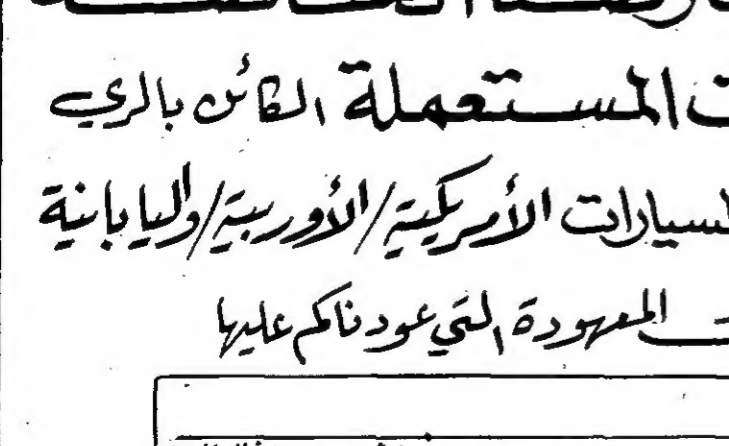 المستعملة الكائن بالري
السيارات الأمريكية/الأوربية/واليابانية
المعهودة التي عودناكم عليها